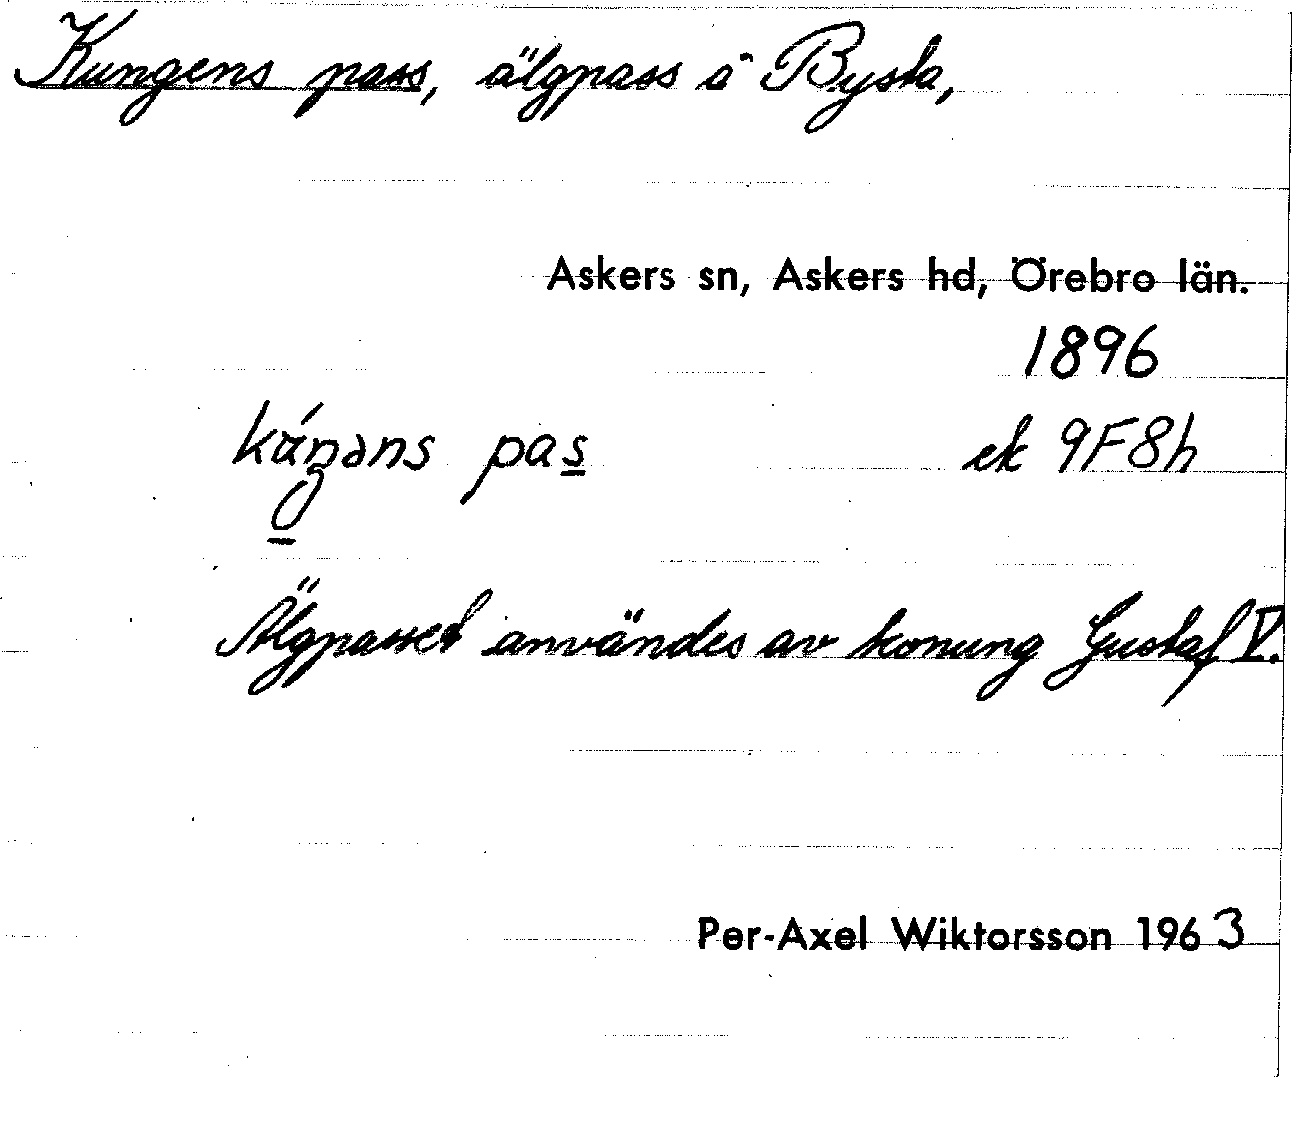 Kungens pass, älgpass å Bysta,
Askers sn, Askers hd, Örebro län.
1896
pas ek 9F8h
Älgpasset användes av konung Gustaf V.
Per-Axel Wiktorsson 1963